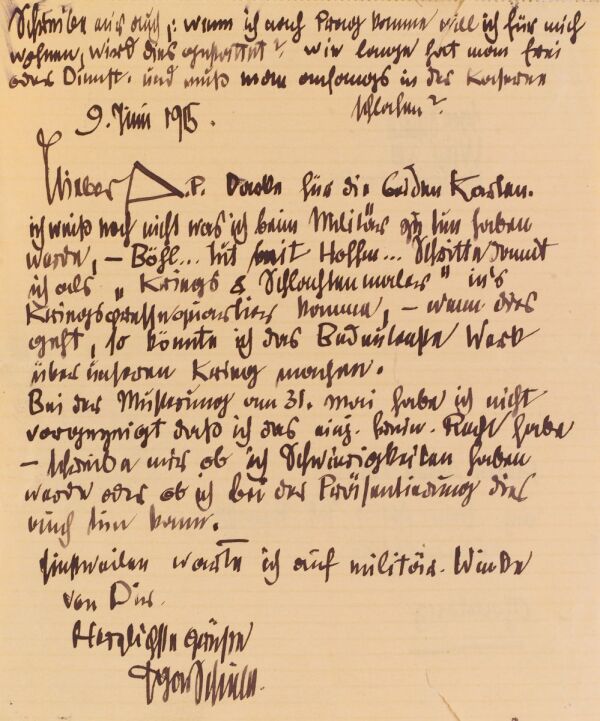 Schreibe mir auch, : wenn ich nach Prag komme will ich für mich
wohnen, wird dies gestattet? wie lange hat man frei
oder Dienst. und muß man anfangs in der Kaserne
schlafen?
9. Juni 1915.
Lieber A.P. Danke für die beiden Karten.
ich weiß noch nicht was ich beim Militär zu tun haben
werde, – Böhl... tut mit Hoffm... Schritte damit
ich als „Kriegs & Schlachtenmaler" in's
Kriegspressequartier komme, – wenn dies
geht, so könnte ich das Bedeutenste Werk
über unseren Krieg machen.
Bei der Musterung am 31. Mai habe ich nicht
vorgezeigt daß ich das einj. freiw. Recht habe
– schreibe mir ob ich Schwierigkeiten haben
werde oder ob ich bei der Präsentierung dies
auch tun kann.
Einstweilen warte ich auf militär. Winke
von Dir.
Herzlichste Grüße
Egon Schiele.